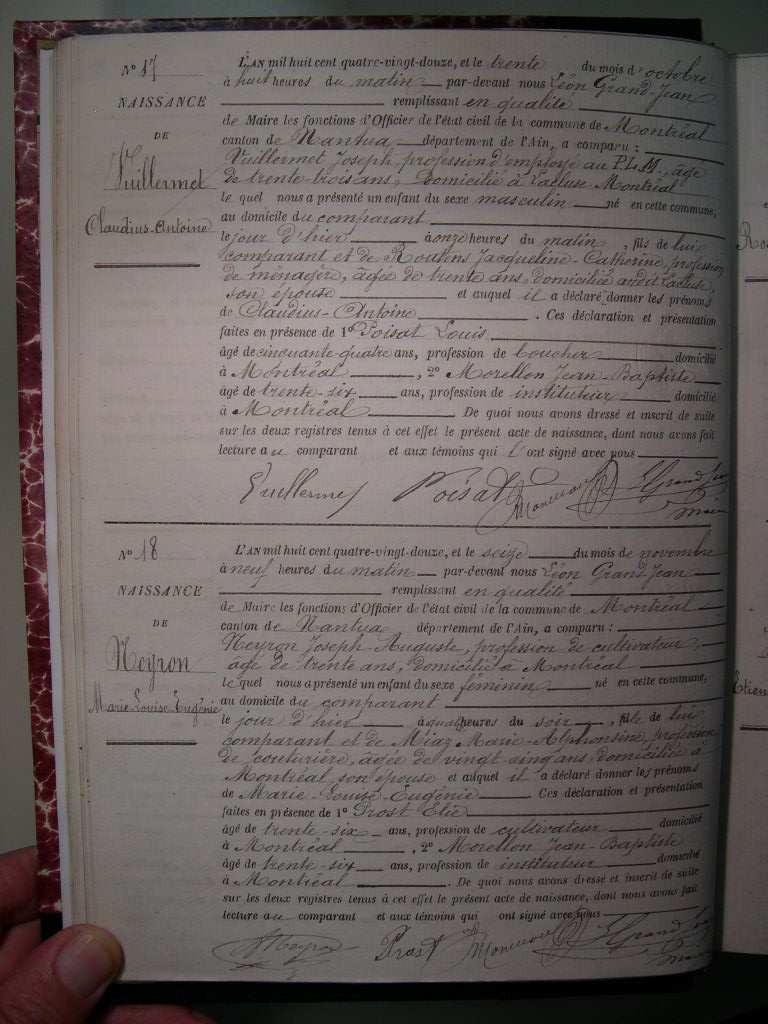 N° 17
NAISSANCE
DE
Vuillermet
Claudius-Antoine
L'AN mil huit cent quatre-vingt-douze, et le trente du mois d'octobre
à huit heures du matin par-devant nous Léon Grand-Jean
remplissant en qualité
de Maire les fonctions d'Officier de l'état civil de la commune de Montréal
canton de Nantua département de l'Ain, a comparu :
Vuillermet Joseph, profession d'employé au P.L.M., âgé
de trente-trois ans, Domicilié à Lacluse Montréal
lequel nous a présenté un enfant du sexe masculin né en cette commune,
au domicile du comparant
le jour d'hier à onze heures du matin, fils de lui
comparant et de Jacqueline-Catherine, profession
de ménagère, âgée de trente ans, domiciliée audit Lacluse,
son épouse et auquel il a déclaré donner les prénoms
de Claudius-Antoine. Ces déclaration et présentation
faites en présence de 1° Poisat Louis
âgé de cinquante-quatre ans, profession de boucher domicilié
à Montréal, 2° Morellon Jean-Baptiste
âgé de trente-six ans, profession de instituteur domicilié
à Montréal De quoi nous avons dressé et inscrit de suite
sur les deux registres tenus à cet effet le présent acte de naissance, dont nous avons fait
lecture au comparant et aux témoins qui l'ont signé avec nous
Vuillermet Poisat
N° 18
NAISSANCE
DE
Neyron
Marie-Louise-Eugénie
L'AN mil huit cent quatre-vingt-douze, et le seize du mois de novembre
à neuf heures du matin par-devant nous Léon Grand-Jean
remplissant en qualité
de Maire les fonctions d'Officier de l'état civil de la commune de Montréal
canton de Nantua département de l'Ain, a comparu :
Neyron Joseph-Auguste, profession de cultivateur,
âgé de trente ans, domicilié à Montréal
lequel nous a présenté un enfant du sexe féminin né en cette commune,
au domicile du comparant
le jour d'hier à quatre heures du soir, fille de lui
comparant et de Marie-Alphonsine, profession
de couturière, âgée de vingt cinq ans, domiciliée à
Montréal, son épouse et auquel il a déclaré donner les prénoms
de Marie-Louise-Eugénie Ces déclaration et présentation
faites en présence de 1° Prost Elie
âgé de trente-six ans, profession de cultivateur domicilié
à Montréal, 2° Morellon Jean-Baptiste
âgé de trente-six ans, profession de instituteur domicilié
à Montréal. De quoi nous avons dressé et inscrit de suite
sur les deux registres tenus à cet effet le présent acte de naissance, dont nous avons fait
lecture au comparant et aux témoins qui ont signé avec nous
Neyron Prost